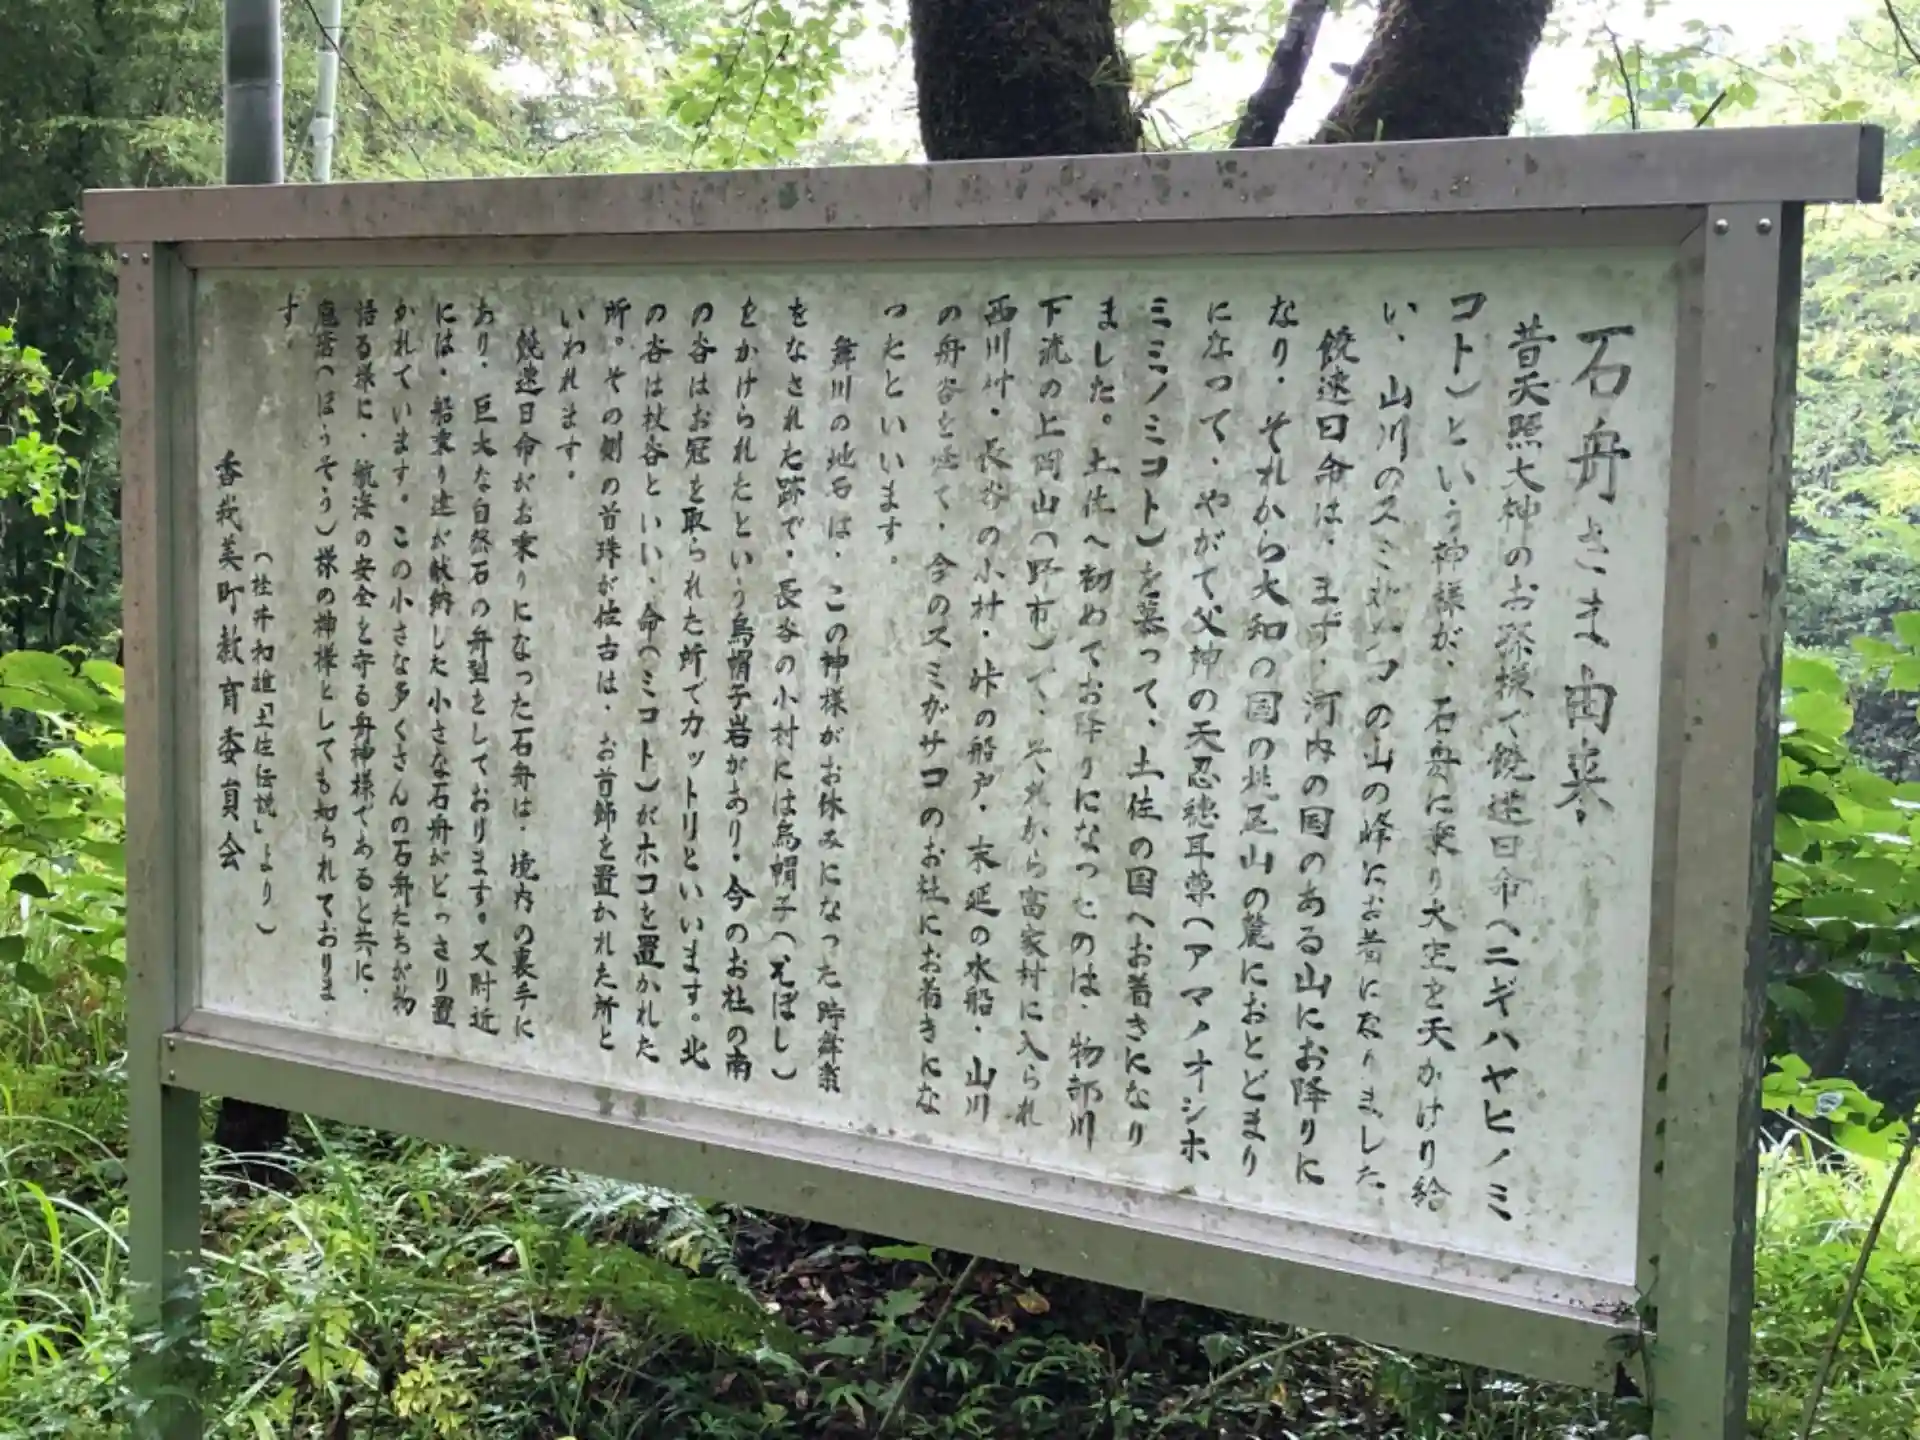 石舟さま由来
昔天照大神のお孫様で饒速日命(ニギハヤヒノミ
コト)という神様が、石舟に乗り大空を天かけり給
い、山川のスミガサコの山の峰にお着になりました。
饒速日命は、まず、河内の国のある山にお降りに
なり、それから大和の国の桃尾山の麓におとどまり
になって、やがて父神の天忍穂耳尊(アマノオシホ
ミミノミコト)を慕って、土佐の国へお着きになり
ました。土佐へ初めてお降りになったのは、物部川
下流の上岡山(野市)で、それから富家村に入られ
西川村、長谷の小村、峠の船戸、末延の水船、山川
の舟谷を 今のスミガサコのお社にお着きにな
ったといいます。
舞川の地石は、この神様がお休みになった時舞
をなされた跡で、長谷の小村には烏帽子(えぼし)
をかけられたという烏帽子岩があり、今のお社の南
の谷はお冠を取られた所でカットリといいます。北
の谷は杖谷といい、命(ミコト)がホコを置かれた
所。その側の首珠が佐古は、お首飾を置かれた所と
いわれます。
饒速日命がお乗りになった石舟は、境内の裏手に
あり、巨大な自然石の舟型をしております。又附近
には、船乗り達が献納した小さな石舟がどっさり置
かれています。この小さな多くさんの石舟たちが物
語る様に、航海の安全を守る舟神様であると共に、
疱瘡(ほうそう)様の神様としても知られておりま
す。
(桂井和雄「土佐伝説」より)
香我美町教育委員会